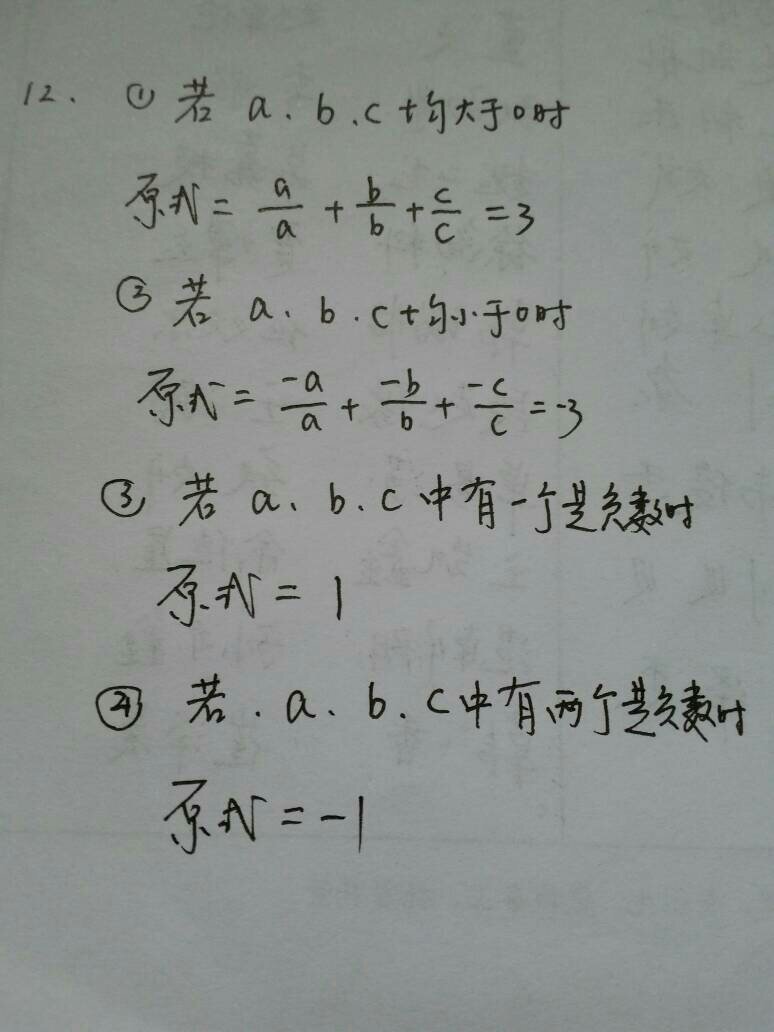 12. ① 若 a、b、c 均大于0时
原式 = a/a + b/b + c/c = 3
② 若 a、b、c 均小于0时
原式 = -a/a + -b/b + -c/c = -3
③ 若 a、b、c 中有一个是负数时
原式 = 1
④ 若、a、b、c中有两个是负数时
原式 = -1